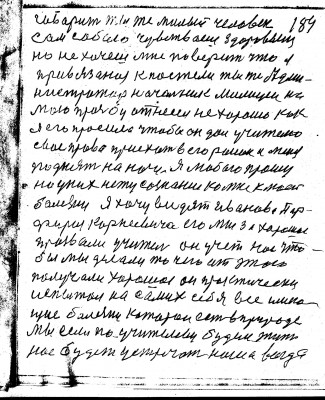 говарит ты же милый человек 184
сам слабо чувствваеш здоровьем
но не хочеш мне поверит что я
привязаной к постели ты же Адми-
нистратор началник милицеи на
мою прозбу отнесси не хорошо как
я его просила чтобы он дал учителю
свое право приехат в его раион и меня
поднят на ноги. Я младого прошу
но у них нету сознание ко же к моей
болезни я хочу видят Иванова Пар-
фирия Корнеевича его мы за хорошое
призвали учител он учет нас что-
бы мы делали то чего от этого
получали хорошое он практически
испытал на самих себя все имею-
щие болезни которои ест в природе
мы если по учителеву будем жит
нас будет устречат наша везде